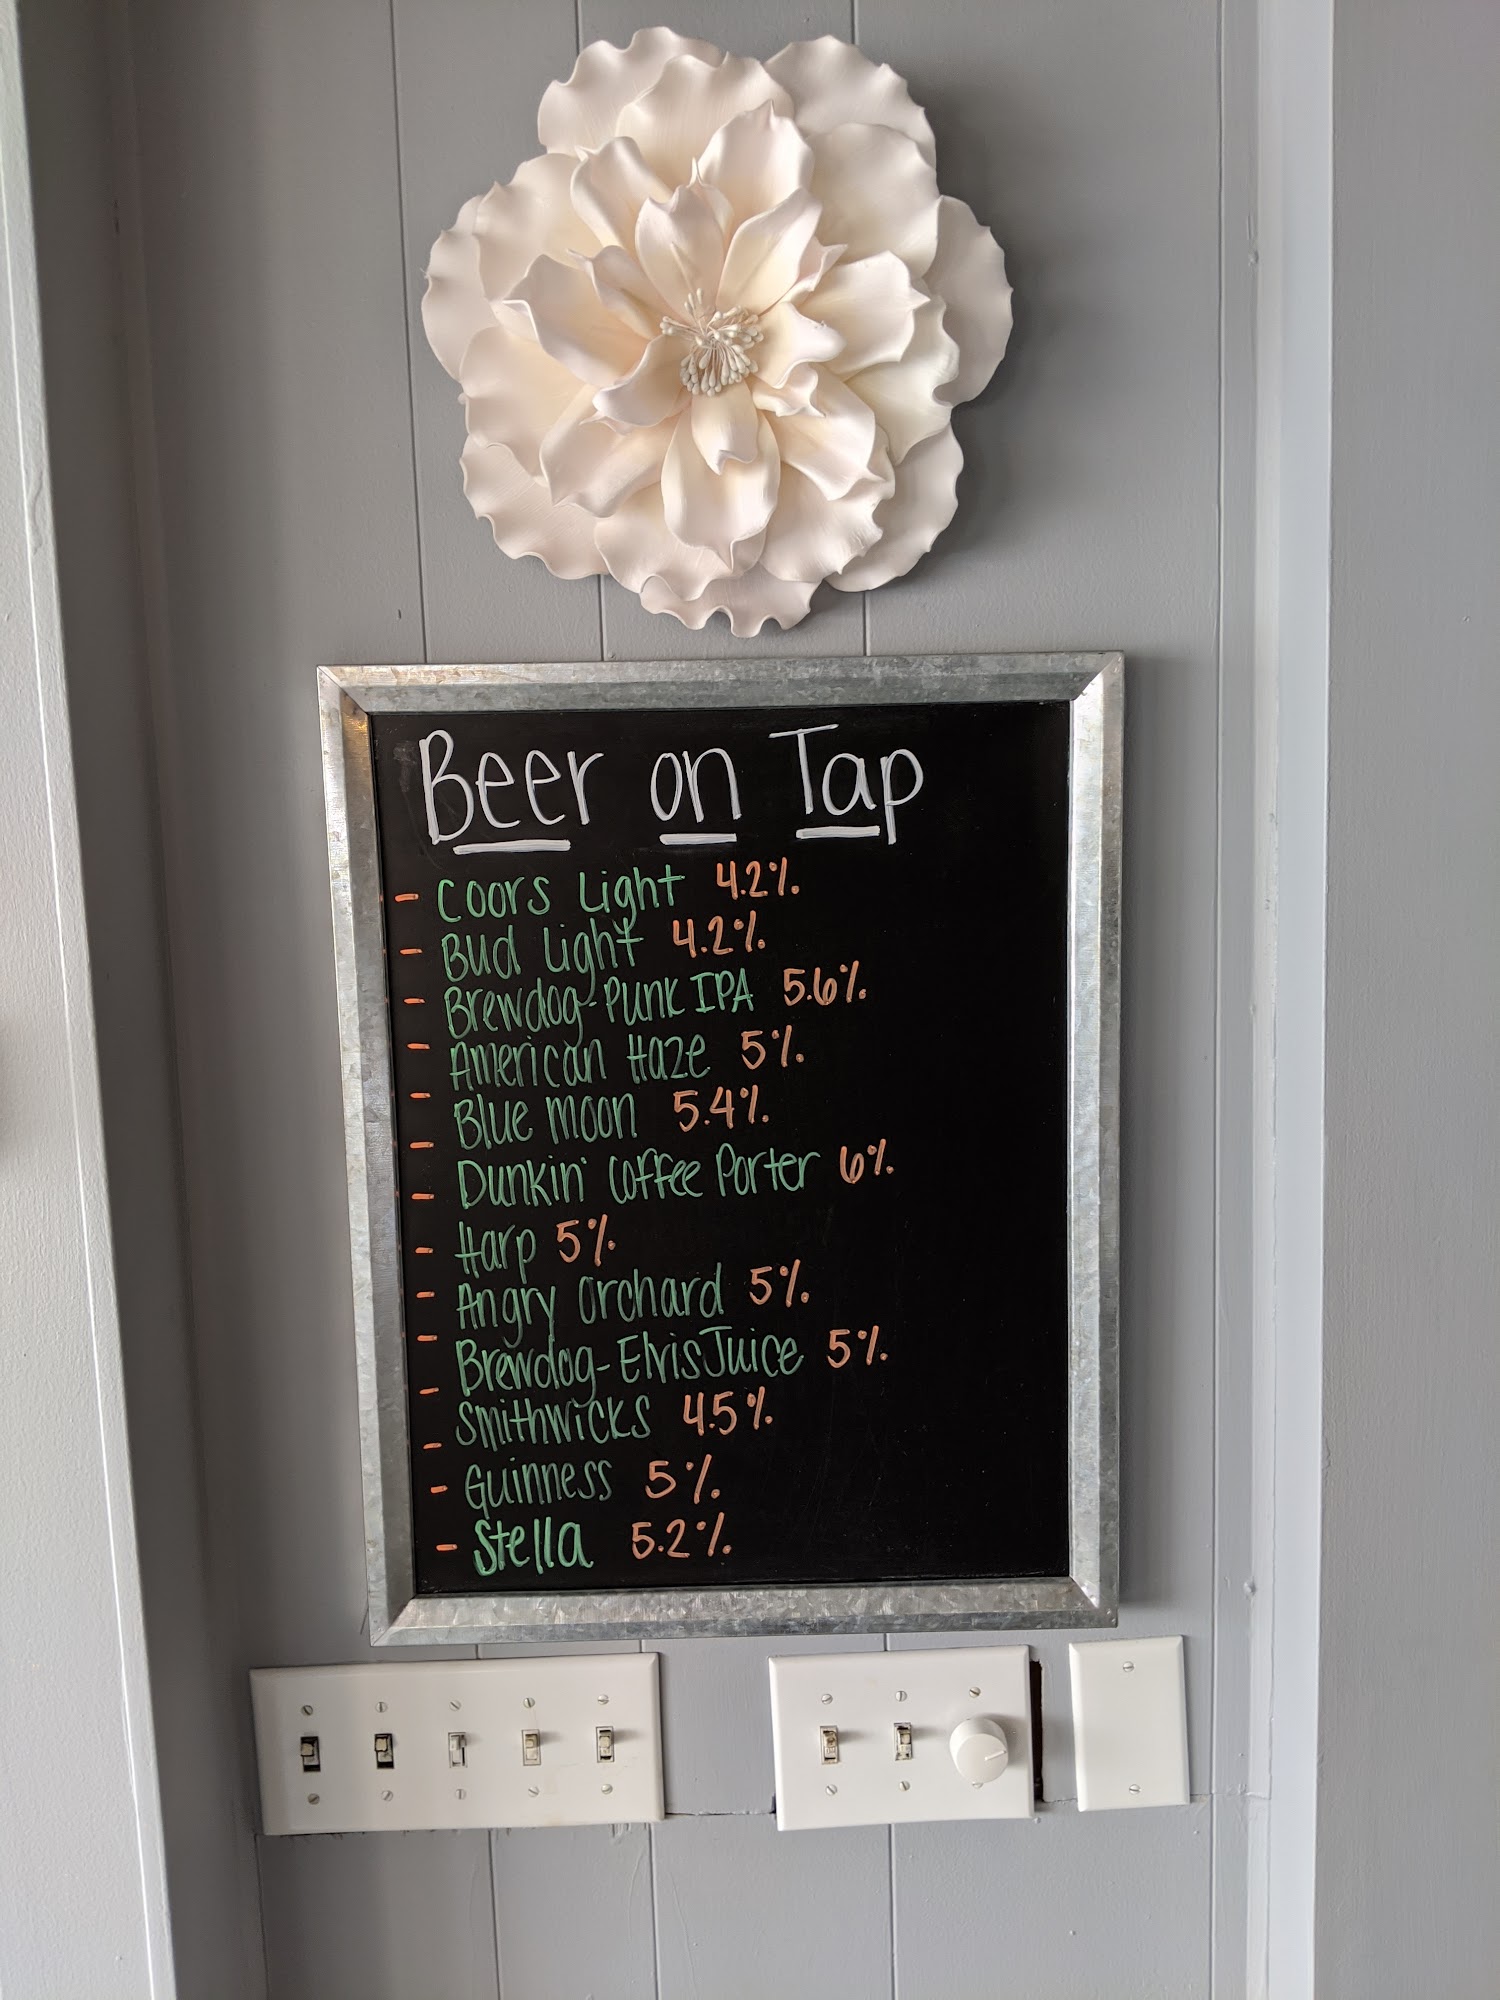 Beer on Tap
- Coors Light 4.2%.
- Bud Light 4.2%.
- Brewdog-Punk IPA 5.6%.
- American Haze 5%.
- Blue Moon 5.4%.
- Dunkin' Coffee Porter 6%.
- Harp 5%.
- Angry Orchard 5%.
- Brewdog-Elvis Juice 5%.
- Smithwicks 4.5%.
- Guinness 5%.
- Stella 5.2%.